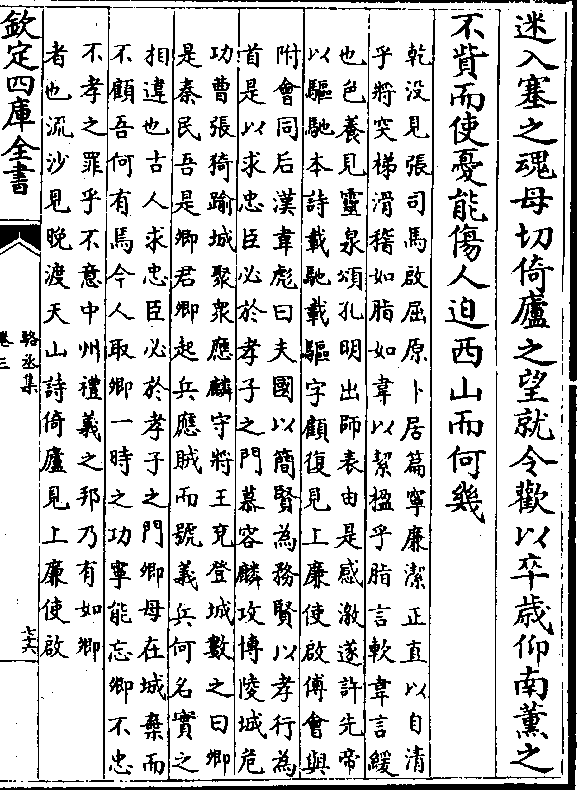 迷入塞之魂母切倚廬之望就令歡以卒歲仰南薰之
不貲而使憂能傷人迫西山而何幾
乾没見張司馬啟屈原卜居篇寧廉潔正直以自清
乎將突梯滑稽如脂如韋以絜楹乎脂言軟韋言緩
也色養見靈泉頌孔明出師表由是感激遂許先帝
以驅馳本詩載馳載驅字顧復見上廉使啟傅會與
附會同后漢韋彪曰夫國以簡賢為務賢以孝行為
首是以求忠臣必於孝子之門慕容麟攻博陵城危
功曹張猗踰城聚衆應麟守將王兗登城數之曰卿
是秦民吾是卿君卿起兵應賊而號義兵何名實之
相違也古人求忠臣必於孝子之門卿母在城棄而
不顧吾何有焉今人取卿一時之功寧能忘卿不忠
不孝之罪乎不意中州禮義之邦乃有如卿
者也流沙見晚渡天山詩倚廬見上廉使啟
欽定四庫全書
駱丞集
卷三
七六